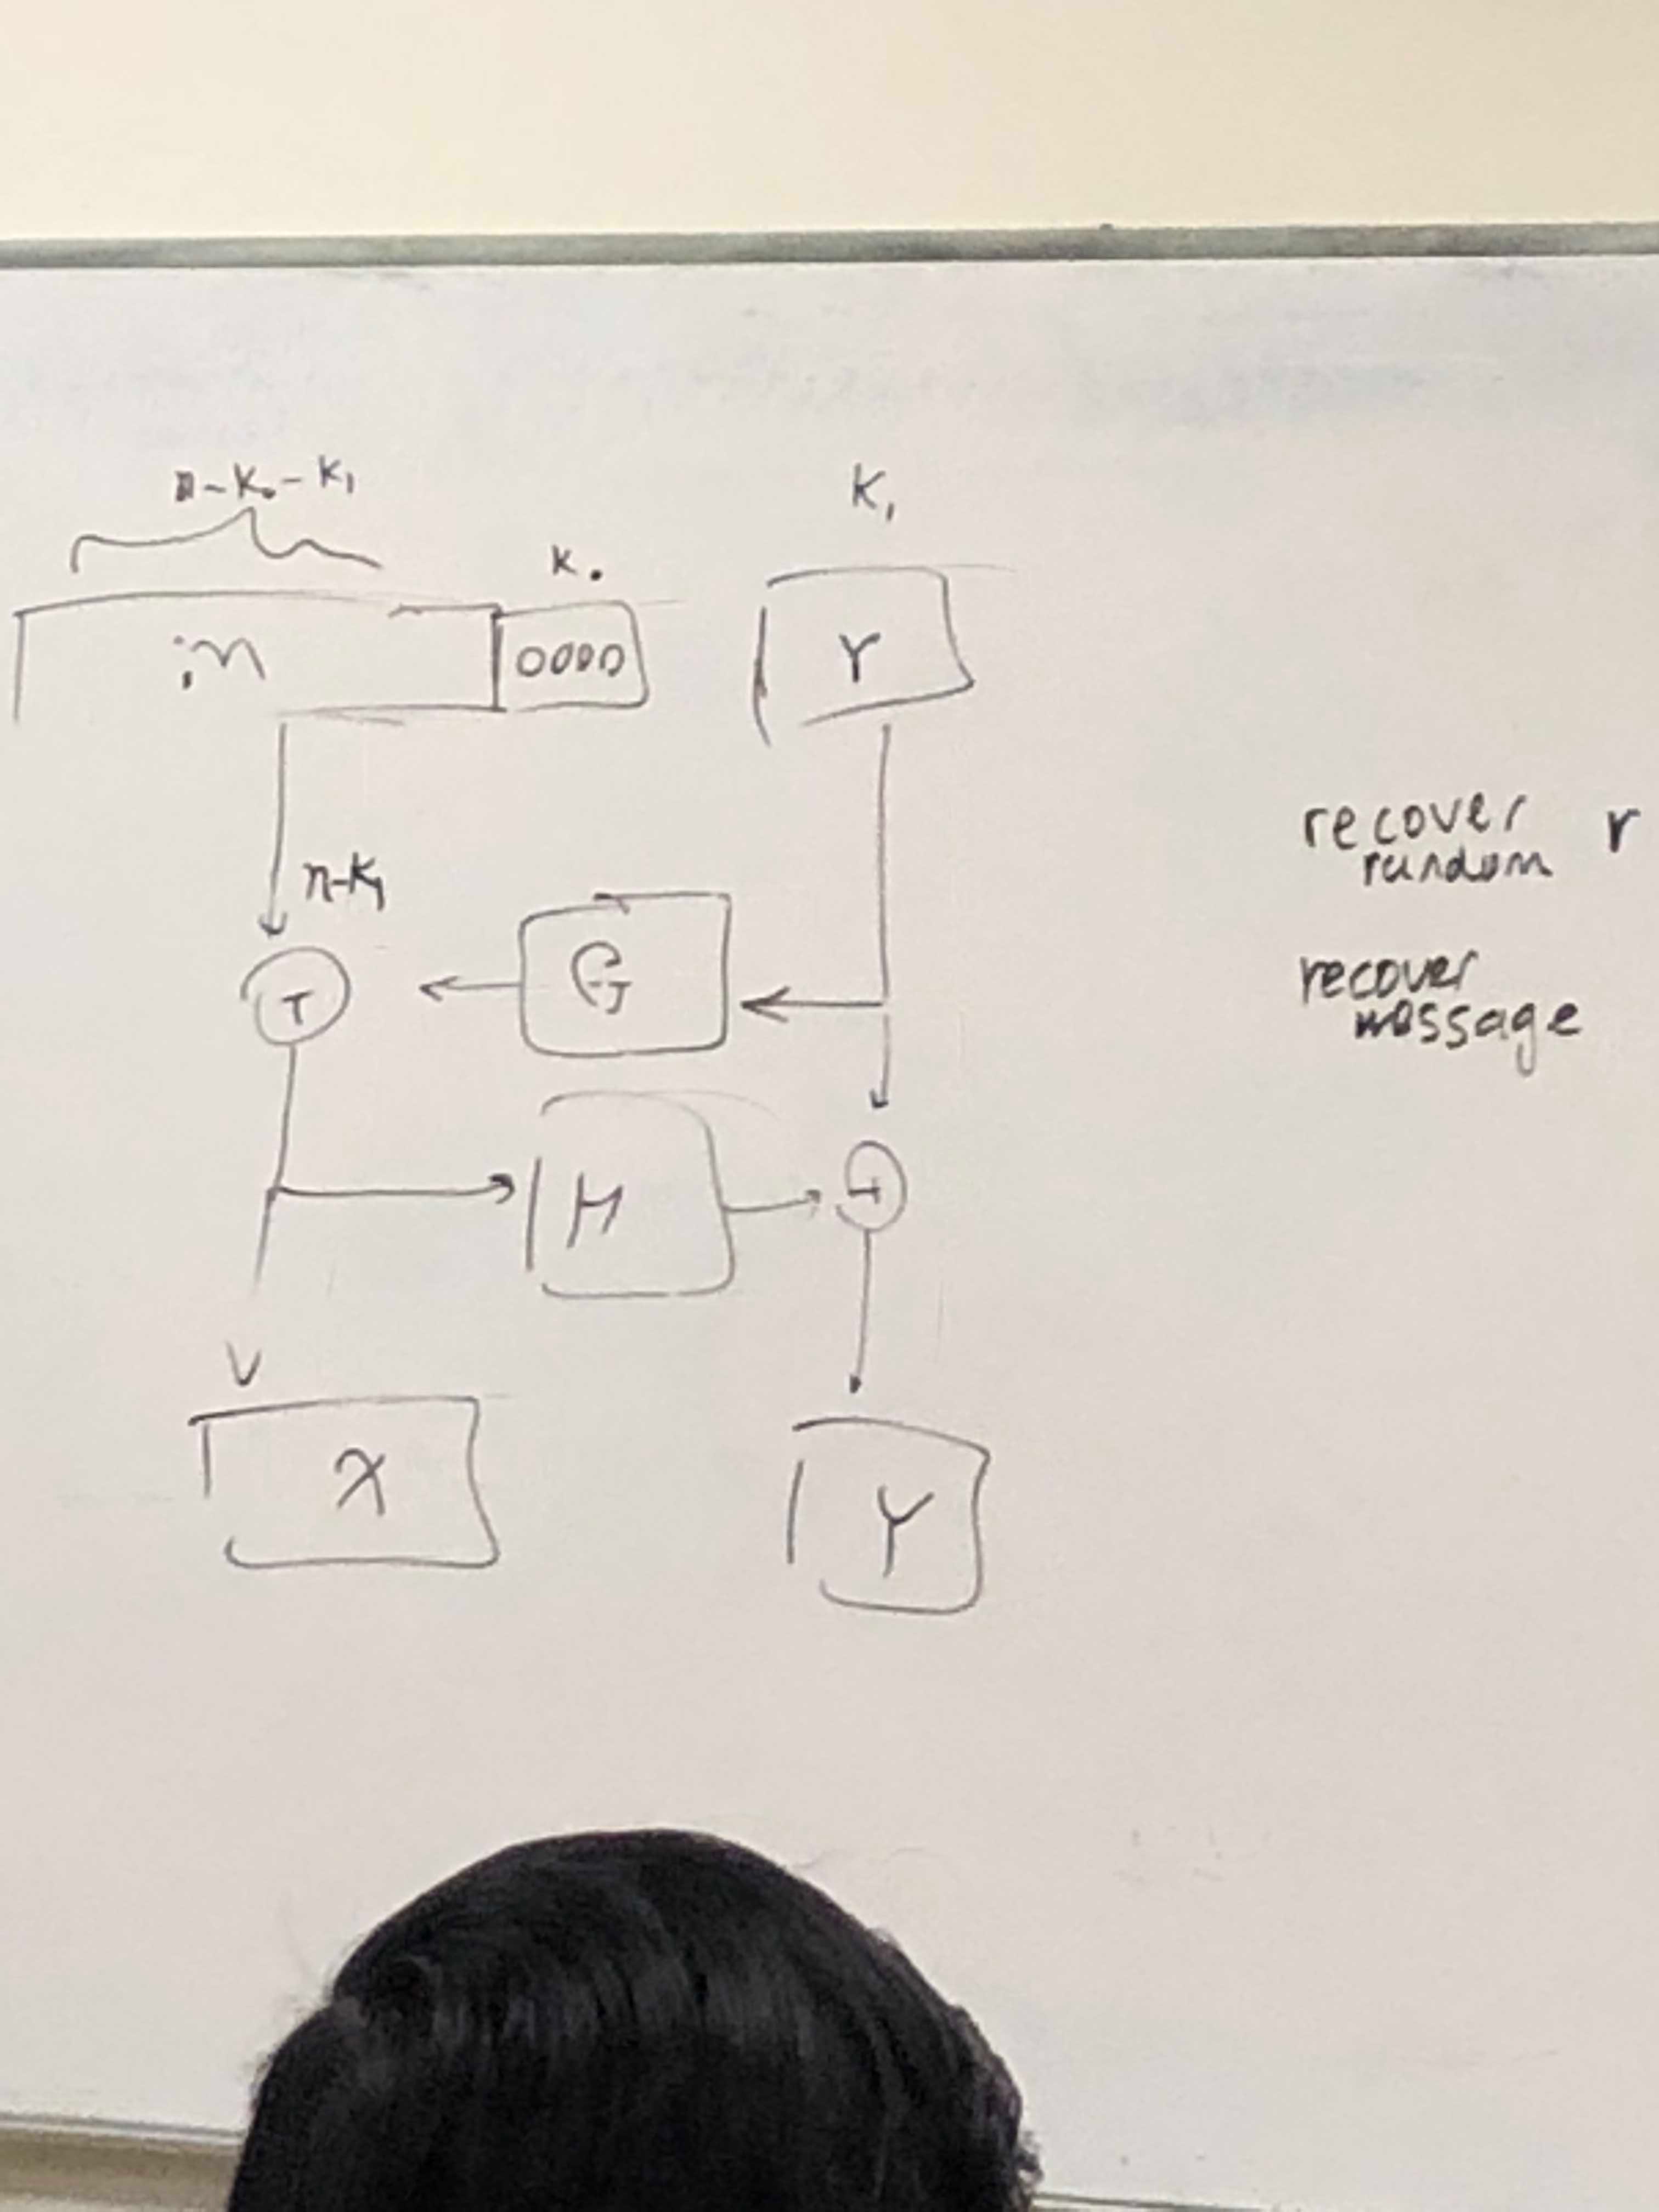 n-k₀-k₁
k₀
k₁
m
0000
r
n-k₁
G
H
X
Y
recover r
random
recover
message